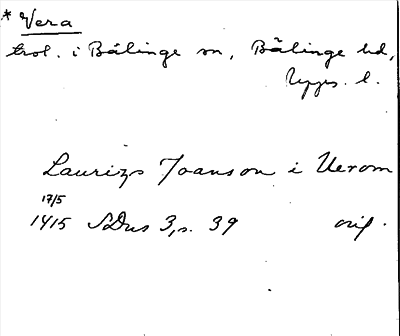 * Vera
trol. i Bälinge sn, Bälinge hd,
Upps. l.
Laurizs Joansson i Uerom
17/5
1415 SDns 3, s. 39 orig.